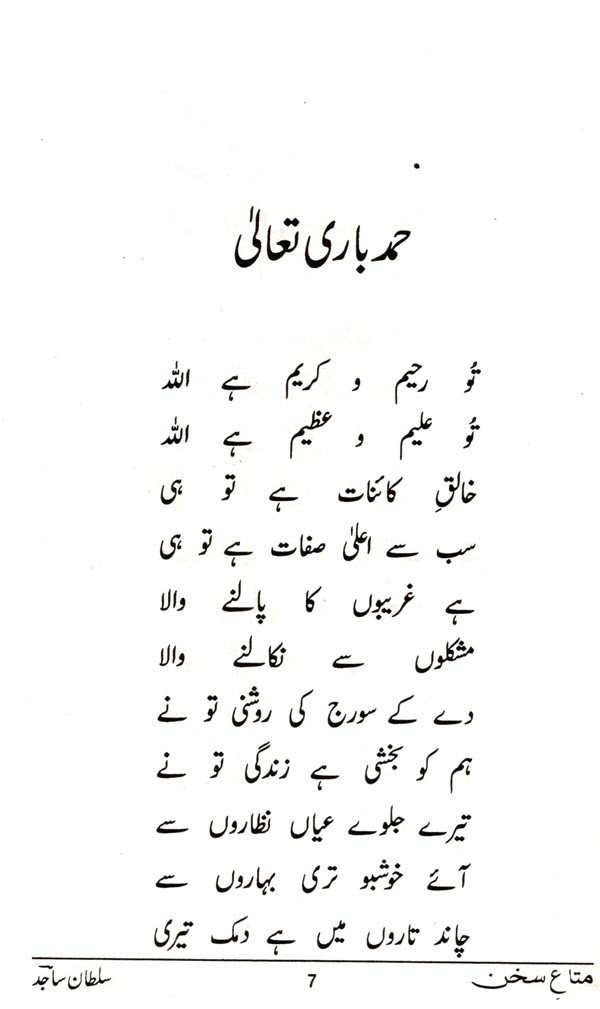 حمد باری تعالیٰ
تُو رحیم و کریم ہے اللہ
تُو علیم و عظیم ہے اللہ
خالقِ کائنات ہے تو ہی
سب سے اعلیٰ صفات ہے تو ہی
ہے غریبوں کا پالنے والا
مشکلوں سے نکالنے والا
دے کے سورج کی روشنی تو نے
ہم کو بخشی ہے زندگی تو نے
تیرے جلوے عیاں نظاروں سے
آئے خوشبو تری بہاروں سے
چاند تاروں میں ہے دمک تیری
متاعِ سخن 7 سلطان ساجد